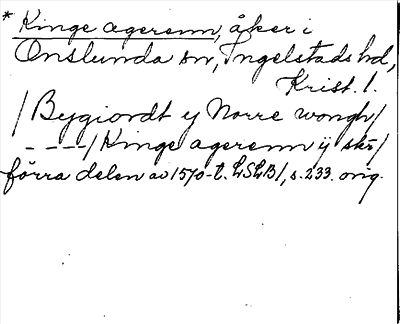 * Kinge agerenn, åker i
Onslunda sn, Ingelstads hd,
Krist. l.
/Bygiordt y Norre wongh/
----/Kinge agerenn ÿ skr/
förra delen av 1570-t. LSLB1, s. 233. orig.